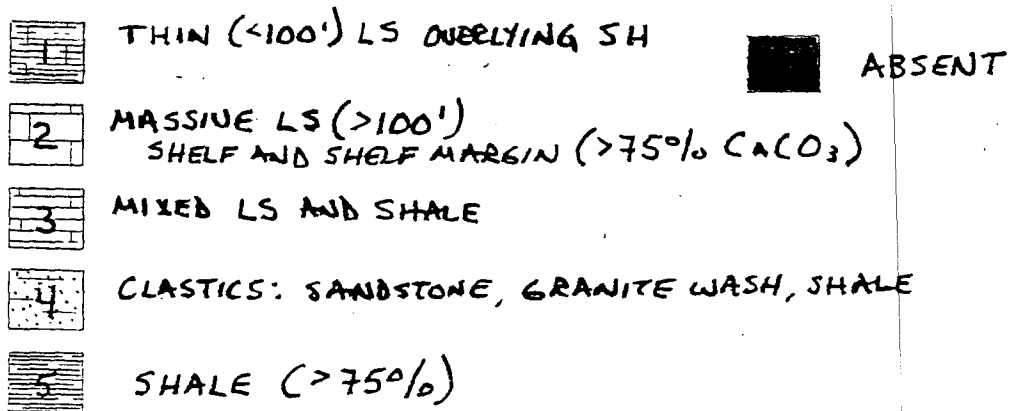 1 THIN (<100') LS OVERLYING SH
ABSENT
2 MASSIVE LS (>100')
SHELF AND SHELF MARGIN (>75% CaCO3)
3 MIXED LS AND SHALE
4 CLASTICS: SANDSTONE, GRANITE WASH, SHALE
5 SHALE (>75%)